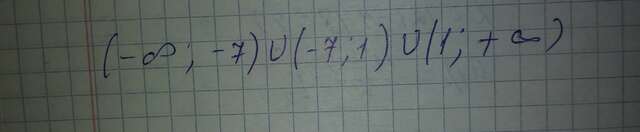 (-∞; -7) ∪ (-7; 1) ∪ (1; +∞)